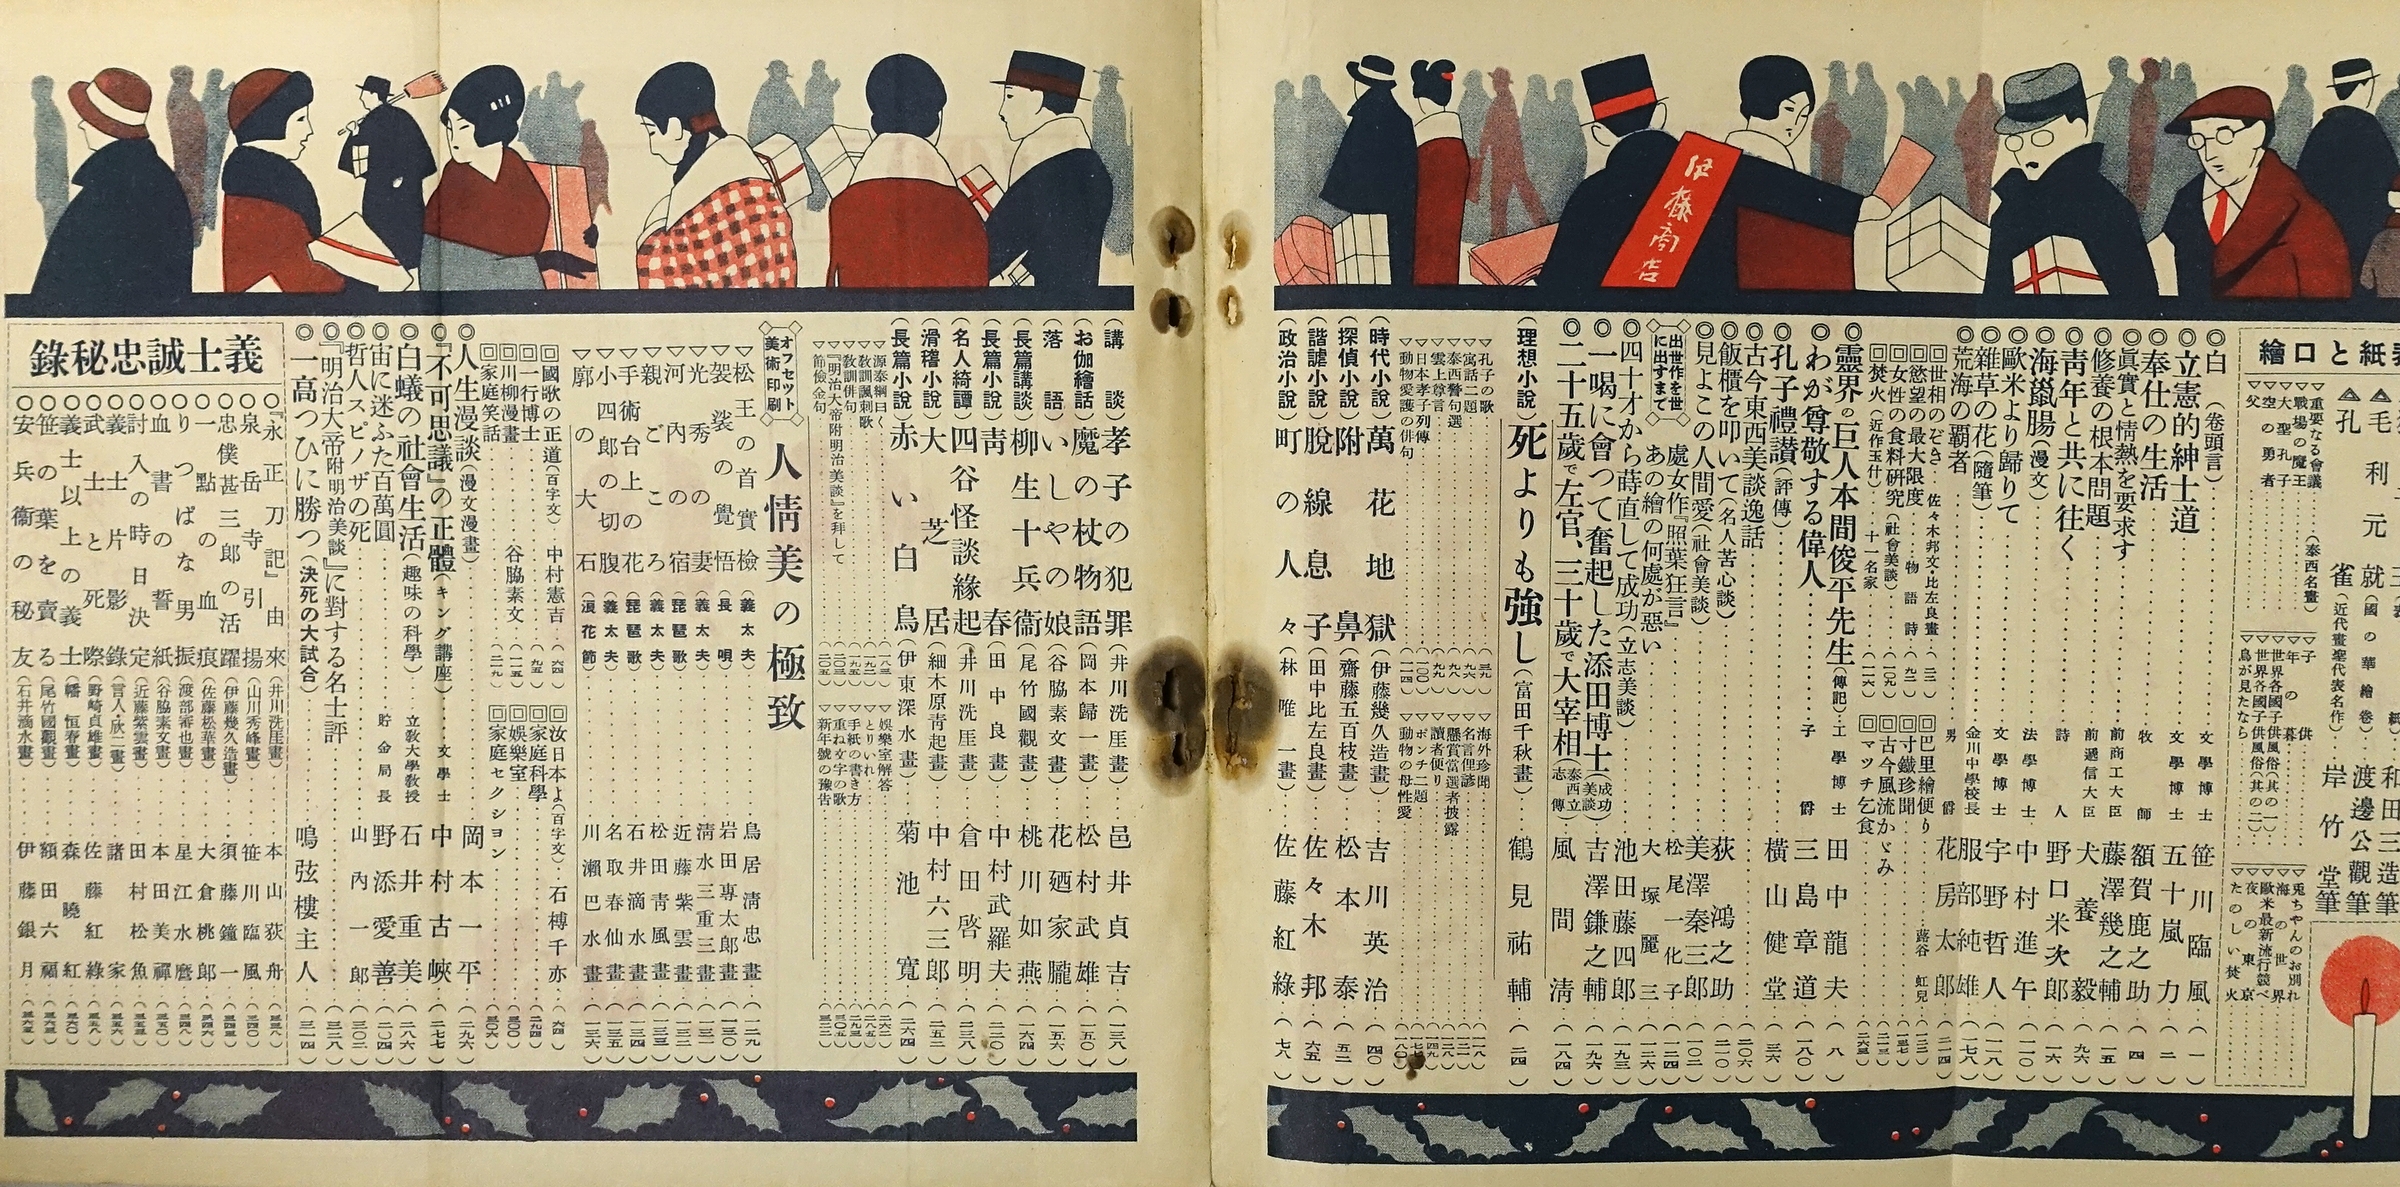 伊橡商店
表紙と口繪
孔雀(近代畫聖代表名作)岸竹堂筆
▽重要なる會議(泰西名畫)
▽戰場の魔王
▽大聖孔子
▽空の勇者
▽父
▽世界各國子供風俗(其の一)
▽世界各國子供風俗(其の二)
▽鳥が見たなら
▽兎ちやんのお別れ
▽海の世界
▽歐米最新流行競べ
▽夜の東京
▽たのしい焚火
◎白(卷頭言)文學博士 笹川臨風(一)
◎立憲的紳士道 文學博士 五十嵐力(二)
◎奉仕の生活 牧師 額賀鹿之助(四)
◎眞實と情熱を要求す 前商工大臣 藤澤幾之輔(一五)
◎修養の根本問題 前遞信大臣 犬養毅(九六)
◎靑年と共に往く 詩人 野口米次郎(一六)
◎海鼠腸(漫文)法學博士 中村進午(一一〇)
◎歐米より歸りて 文學博士 宇野哲人(一二八)
◎雜草の花(隨筆)金川中學校長 服部純雄(一七八)
◎荒海の覇者 男爵 花房太郎(二一四)
回世相のぞき 佐々木邦文・比左良畫(三二)
回慾望の最大限度 物語詩(九二)
回女性の食料硏究(社會美談)(一〇九)
回焚火(近作玉什)十一名家(一一六)
回巴里繪便り 蕗谷虹兒(一三二)
回寸鐵珍聞(一三七)
回古今風流かゞみ(二一三)
回マツチ乞食(二六三)
◎靈界の巨人本間俊平先生(傳記)工學博士 田中龍夫(八)
◎わが尊敬する偉人 子爵 三島章道(一八〇)
◎孔子禮讃(評傳)橫山健堂(三六)
◎古今東西美談逸話(二〇六)
◎飯櫃を叩いて(名人苦心談)荻鴻之助(二一〇)
◎見よこの人間愛(社會美談)美澤秦三郎(一〇二)
出世作を世に出すまで
處女作『照葉狂言』松尾一化子(一二四)
あの繪の何處が惡い 大塚麗三(一二六)
◎四十才から蒔直して成功(立志美談)池田藤四郎(一九三)
◎一喝に會つて奮起した添田博士(成功美談)吉澤鎌之輔(一九六)
◎二十五歲で左官、三十歲で大宰相(泰西立志傳)風間淸(一八四)
(理想小說)死よりも強し(富田千秋畫)鶴見祐輔(二四)
▽孔子の歌(三九)
▽寓話二題(九六)
▽泰西警句選(九八)
▽雲上尊言(九九)
▽日本孝子列傳(一〇〇)
▽動物愛護の俳句(一一四)
▽海外珍聞(一一八)
▽名言俚諺(一二一)
▽懸賞當選者披露(一二八)
▽讀者便り(一四九)
▽ポンチ二題
▽動物の母性愛(一八〇)
(時代小說)萬花地獄(伊藤幾久造畫)吉川英治(四〇)
(探偵小說)附鼻(齋藤五百枝畫)松本泰(五二)
(諧謔小說)脫線息子(田中比左良畫)佐々木邦(六五)
(政治小說)町の人々(林唯一畫)佐藤紅綠(七八)
(講談)孝子の犯罪(井川洗厓畫)邑井貞吉(一三八)
(お伽繪話)魔の杖物語(岡本歸一畫)松村武雄(一五〇)
(落語)いしやの娘(谷脇素文畫)花廼家朧(一五六)
(長篇講談)柳生十兵衞(尾竹國觀畫)桃川如燕(一六四)
(長篇小說)靑春(田中良畫)中村武羅夫(二二〇)
(名人綺譚)四谷怪談緣起(井川洗厓畫)倉田啓明(二三八)
(滑稽小說)大芝居(細木原青起畫)中村六三郎(二五二)
(長篇小說)赤い白鳥(伊東深水畫)菊池寬(二六四)
▽源泰綱曰く(一八三)
▽敎訓諷刺歌(一九二)
▽敎訓俳句(一九五)
▽『明治大帝附明治美談』を拜して(二〇三)
▽節儉金句(二〇五)
▽娛樂室解答(二六二)
▽とりいれ(二八五)
▽手紙の書き方(二九三)
▽重ね文字の歌(三〇五)
▽新年號の豫告(三二六)
オフセツト美術印刷
人情美の極致
▽松王の首實檢(義太夫)鳥居淸忠畫(一二九)
▽袈裟の覺悟(長唄)岩田專太郎畫(一三〇)
▽光秀の妻(義太夫)淸水三重三畫(一三一)
▽河內の宿(琵琶歌)近藤紫雲畫(一三二)
▽親ごころ(義太夫)松田靑風畫(一三三)
▽手術台上の花(琵琶歌)石井滴水畫(一三四)
▽小四郎の切腹(義太夫)名取春仙畫(一三五)
▽廓の大石(浪花節)川瀨巴水畫(一三六)
回國歌の正道(百字文)中村憲吉(六四)
回一行博士(九五)
回川柳漫畫 谷脇素文(一一五)
回家庭笑話(二一九)
回汝日本よ(百字文)石榑千亦(六四)
回家庭科學(二九四)
回娛樂室(三〇〇)
回家庭セクシヨン(三〇六)
◎人生漫談(漫文漫畫)岡本一平(二九六)
◎『不可思議』の正體(キング講座)文學士 中村古峽(二七七)
◎白蟻の社會生活(趣味の科學)立敎大學敎授 石井重美(二八六)
◎宙に迷ふた百萬圓 貯金局長 野添愛善(二〇四)
◎哲人スピノザの死 山內一郎(三〇二)
◎『明治大帝附明治美談』に對する名士評(三二八)
◎一高つひに勝つ(決死の大試合)鳴弦樓主人(三一四)
義士誠忠秘錄
○『永正刀記』由來(井川洗厓畫)本山荻舟(三三八)
○泉岳寺引揚(山川秀峰畫)笹川臨風(三四〇)
○忠僕甚三郎の活躍(伊藤幾久造畫)須藤鐘一(三四三)
○一點の血痕(佐藤松華畫)大倉桃郎(三四六)
○りつぱな男振(渡部審也畫)星江水麿(三四八)
○血書の誓紙(谷脇素文畫)本田美禪(三五一)
○討入の時日決定(近藤紫雲畫)田村松魚(三五三)
○義士片影錄(言人・欣二畫)諸家(三五六)
○武士と死際(野崎貞雄畫)佐藤紅綠(三五八)
○義士以上の義士(幡恒春畫)森曉紅(三六〇)
○笹の葉を賣る(尾竹國觀畫)額田六福(三六三)
○安兵衞の秘友(石井滴水畫)伊藤銀月(三六五)